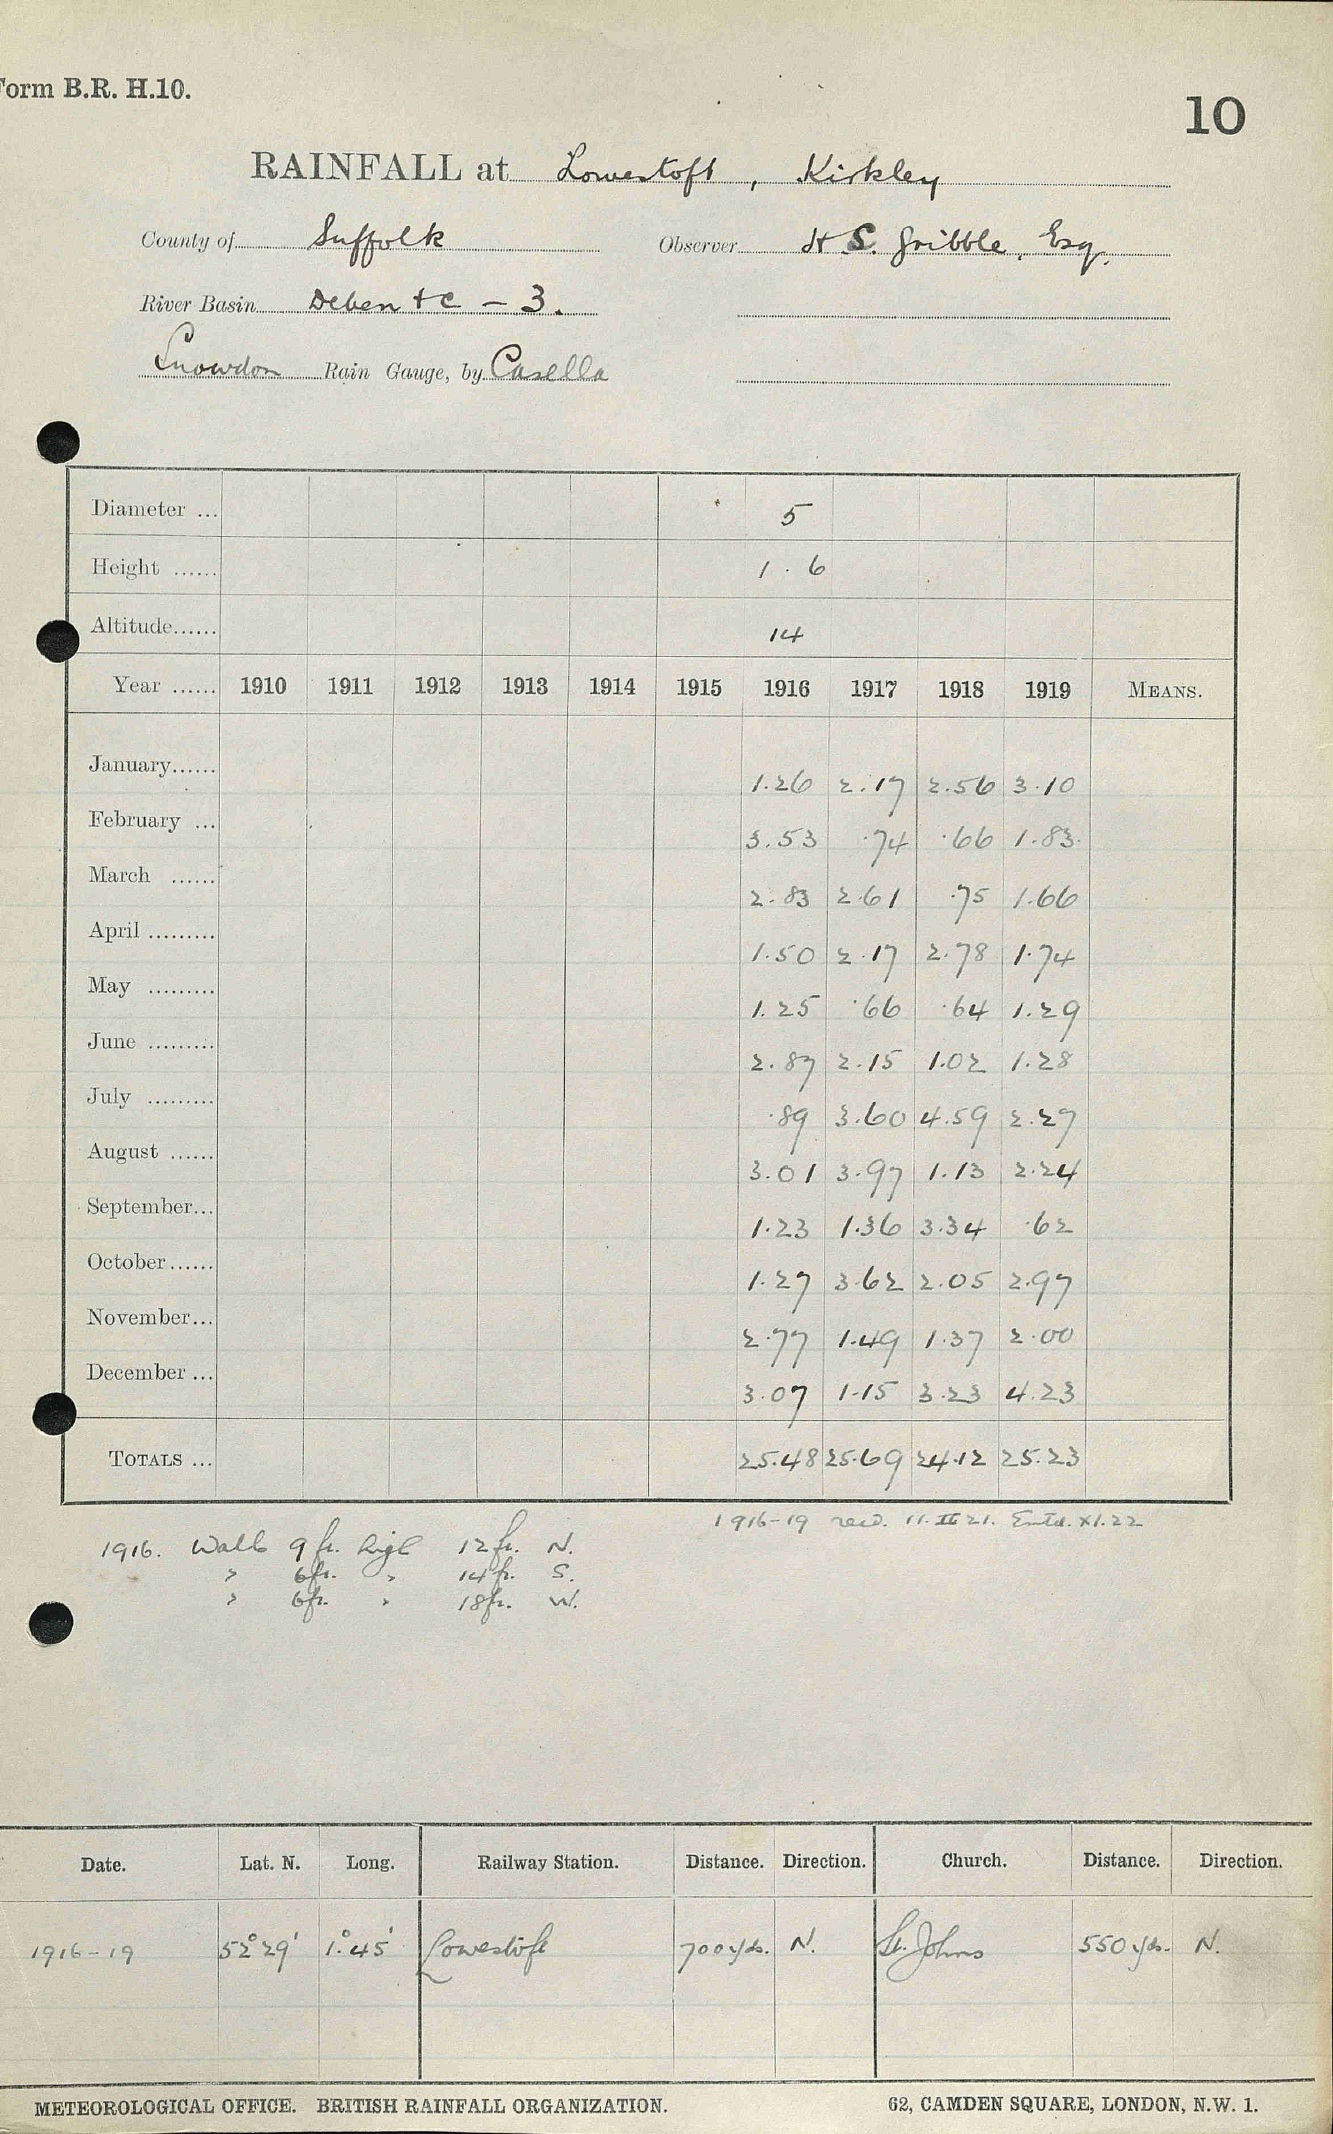 Form B.R. H.10.
10
RAINFALL at Lowestoft, Kirkley
County of Suffolk Observer H S. Gribble, Esq.
River Basin Deben &c - 3.
Snowdon Rain Gauge, by Casella
Diameter ... 5
Height ...... 1 . 6
Altitude...... 14
Year ...... 1910 1911 1912 1913 1914 1915 1916 1917 1918 1919 MEANS.
January...... 1.26 2.17 2.56 3.10
February ... 3.53 .74 .66 1.83
March ...... 2.83 2.61 .75 1.66
April ......... 1.50 2.17 2.78 1.74
May ......... 1.25 .66 .64 1.29
June ......... 2.87 2.15 1.02 1.28
July ......... .89 3.60 4.59 2.27
August ...... 3.01 3.97 1.13 2.24
September... 1.23 1.36 3.34 .62
October...... 1.27 3.62 2.05 2.97
November... 2.77 1.49 1.37 2.00
December ... 3.07 1.15 3.23 4.23
TOTALS ... 25.48 25.69 24.12 25.23
1916-19 recd. 11. II 21. Entd. XI.22
1916. Wall 9 ft. high 12 ft. N.
" 6ft. " 14 ft. S.
" 6ft. " 18ft. W.
Date. Lat. N. Long. Railway Station. Distance. Direction. Church. Distance. Direction.
1916-19 52° 29' 1° 45' Lowestoft 700 yds. N. St. Johns 550 yds. N.
METEOROLOGICAL OFFICE. BRITISH RAINFALL ORGANIZATION. 62, CAMDEN SQUARE, LONDON, N.W. 1.